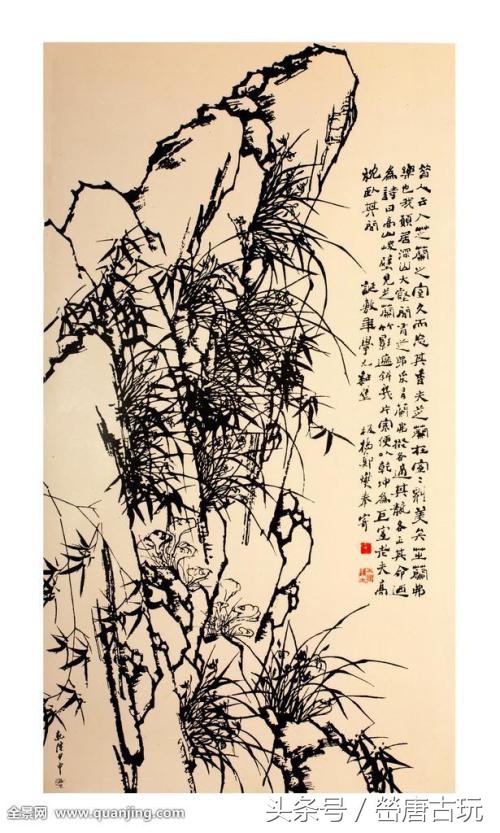 昔人云入芝蘭之室久而忘其香夫芝蘭在室〻則美矣芝蘭弗
樂也我願居深山大壑間有芝弗采有蘭弗掇各適其各正其命迺
為詩曰高山峻壁見芝蘭竹影遮斜幾片寒便以乾坤為巨室老夫高
枕臥其間 學兄 板橋鄭燮奉寄
乾隆甲申
全景网 www.quanjing.com
头条号 / 嵤唐古玩